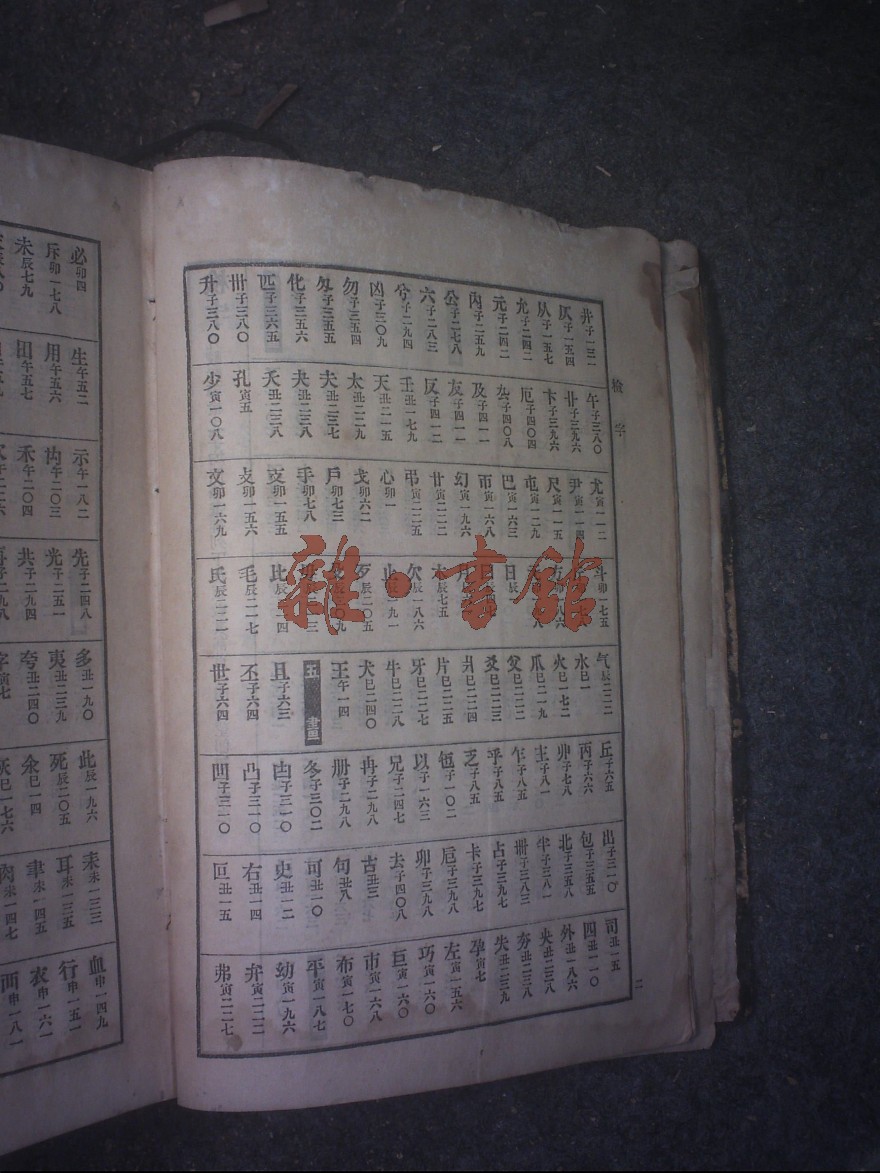 檢字
井子一二二 仄子一五四 从子一五七 允子二四二 元子二四二 內子二五九 公子二七八 六子二八三 兮子二九四 凶子三〇九 勿子三五四 勾子三五五 化子三五六 匹子三六五 卅子三八〇 升子三八〇
午子三八〇 卄子三九六 卞子三九六 厄子四〇四 厷子四〇八 及子四一一 友子四一一 反子四一二 壬丑一七九 天丑二一五 太丑二二九 夫丑二三七 夬丑二三八 夭丑二三八 孔寅五 少寅一〇八
尤寅一一二 尹寅一一四 尺寅一一五 屯寅一二九 巴寅一六三 帀寅一六八 幻寅一九六 廿寅二二二 弔寅二二五 心卯一 戈卯六二 戶卯七三 手卯七八 支卯一五五 攴卯一五六 文卯一六九
斗卯一七五 日 欠辰一八六 止 歹辰二〇五 比辰 毛辰二一七 氏辰二二一
气辰二二二 水巳一 火巳一七二 爪巳二一九 父巳二二二 爻巳二二三 爿巳二二四 片巳二二五 牙巳二二七 牛巳二二八 犬巳二四〇 王午一四 五畫 且子六三 丕子六四 世子六四
丘子六五 丙子六六 丱子七八 主子八一 乍子八五 乎子八五 乏子八五 以子一六三 兄子二四七 冉子二九八 册子二九八 冬子三〇二 凷子三一〇 凸子三一〇 凹子三一〇
出子三一〇 包子三五五 北子三五八 半子三八一 卌子三八三 占子三九七 卡子三九七 卮子三九八 卯子三九八 去子四〇八 古丑三 句丑八 可丑一〇 史丑一二 右丑一四 叵丑一五
司丑一五 四丑一一〇 外丑一八六 央丑二三八 夯丑二三八 失丑二三九 孕寅七 左寅一五六 巧寅一六〇 巨寅一六〇 市寅一六八 布寅一七〇 平寅一八七 幼寅一九六 弁寅二二二 弗寅二二七
二
必卯四 斥卯一七八 未辰七九
生午五二 用午五六 田午五七
示午一八二 禸午二〇三 禾午二〇四
先子二四八 光子二五一 共子二九四
多丑一九〇 夷丑二三九 夸丑二四〇
此辰一九六 死辰二〇五 汆巳一四 灰巳一七六
耒未一三三 耳未一三五 聿未一四五 肉未一四七
血申一四九 行申一五一 衣申一六一 襾申一八一
雜·書館